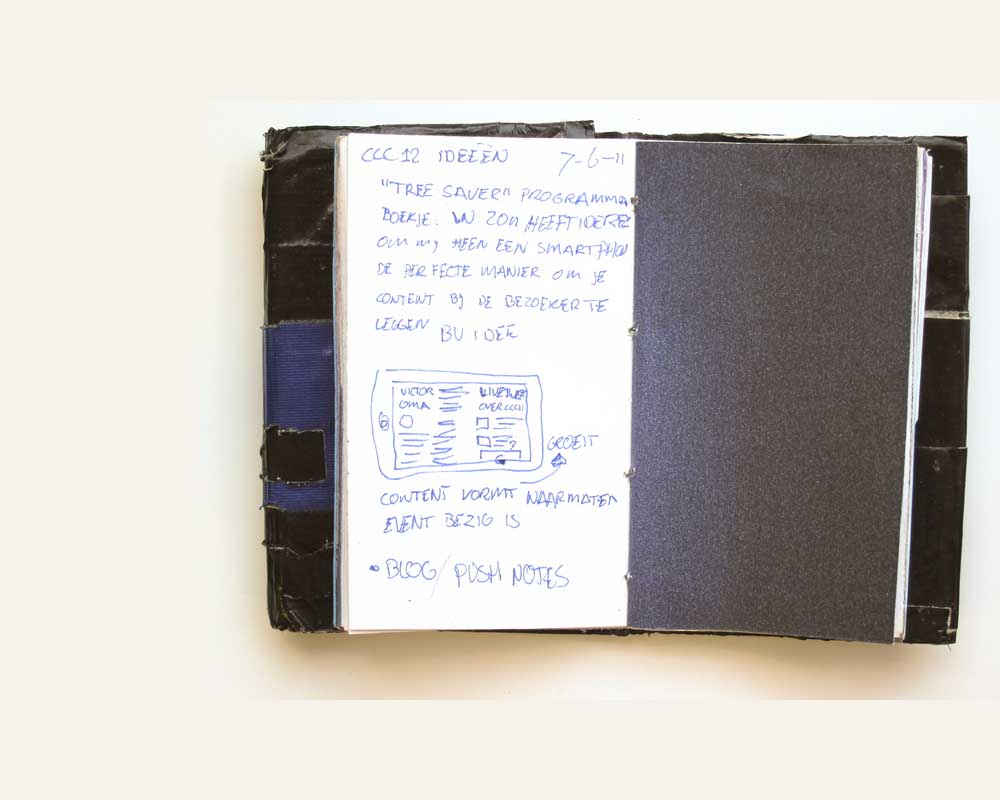 CCC 12 IDEEËN 7-6-11
"TREE SAVER" PROGRAMMA
BOEKJE. IN ZON HEEFT IDEREE
OM mij HEEN EEN SMARTPHON
DE PERFECTE MANIER OM JE
CONTENT BIJ DE BEZOEKER TE
LEGGEN
BIJ IDEE
VICTOR
OMA
OVER CCC11
GROEIT
CONTENT VORMT NAARMATEN
EVENT BEZIG IS
• BLOG / PUSH NOTES